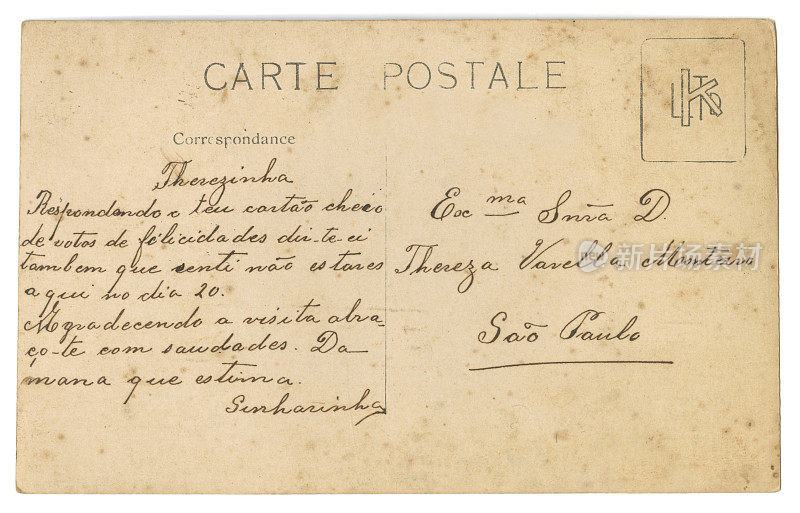 CARTE POSTALE
Correspondance
Therezinha
Respondendo o teu cartão cheio
de votos de félicidades dir-te-ei
tambem que senti não estares
aqui no dia 20.
Agradecendo a visita abra-
ço-te com saudades. Da
mana que estima.
Sinharinha
Ex ma Snra D.
Thereza Varella Monteiro
São Paulo